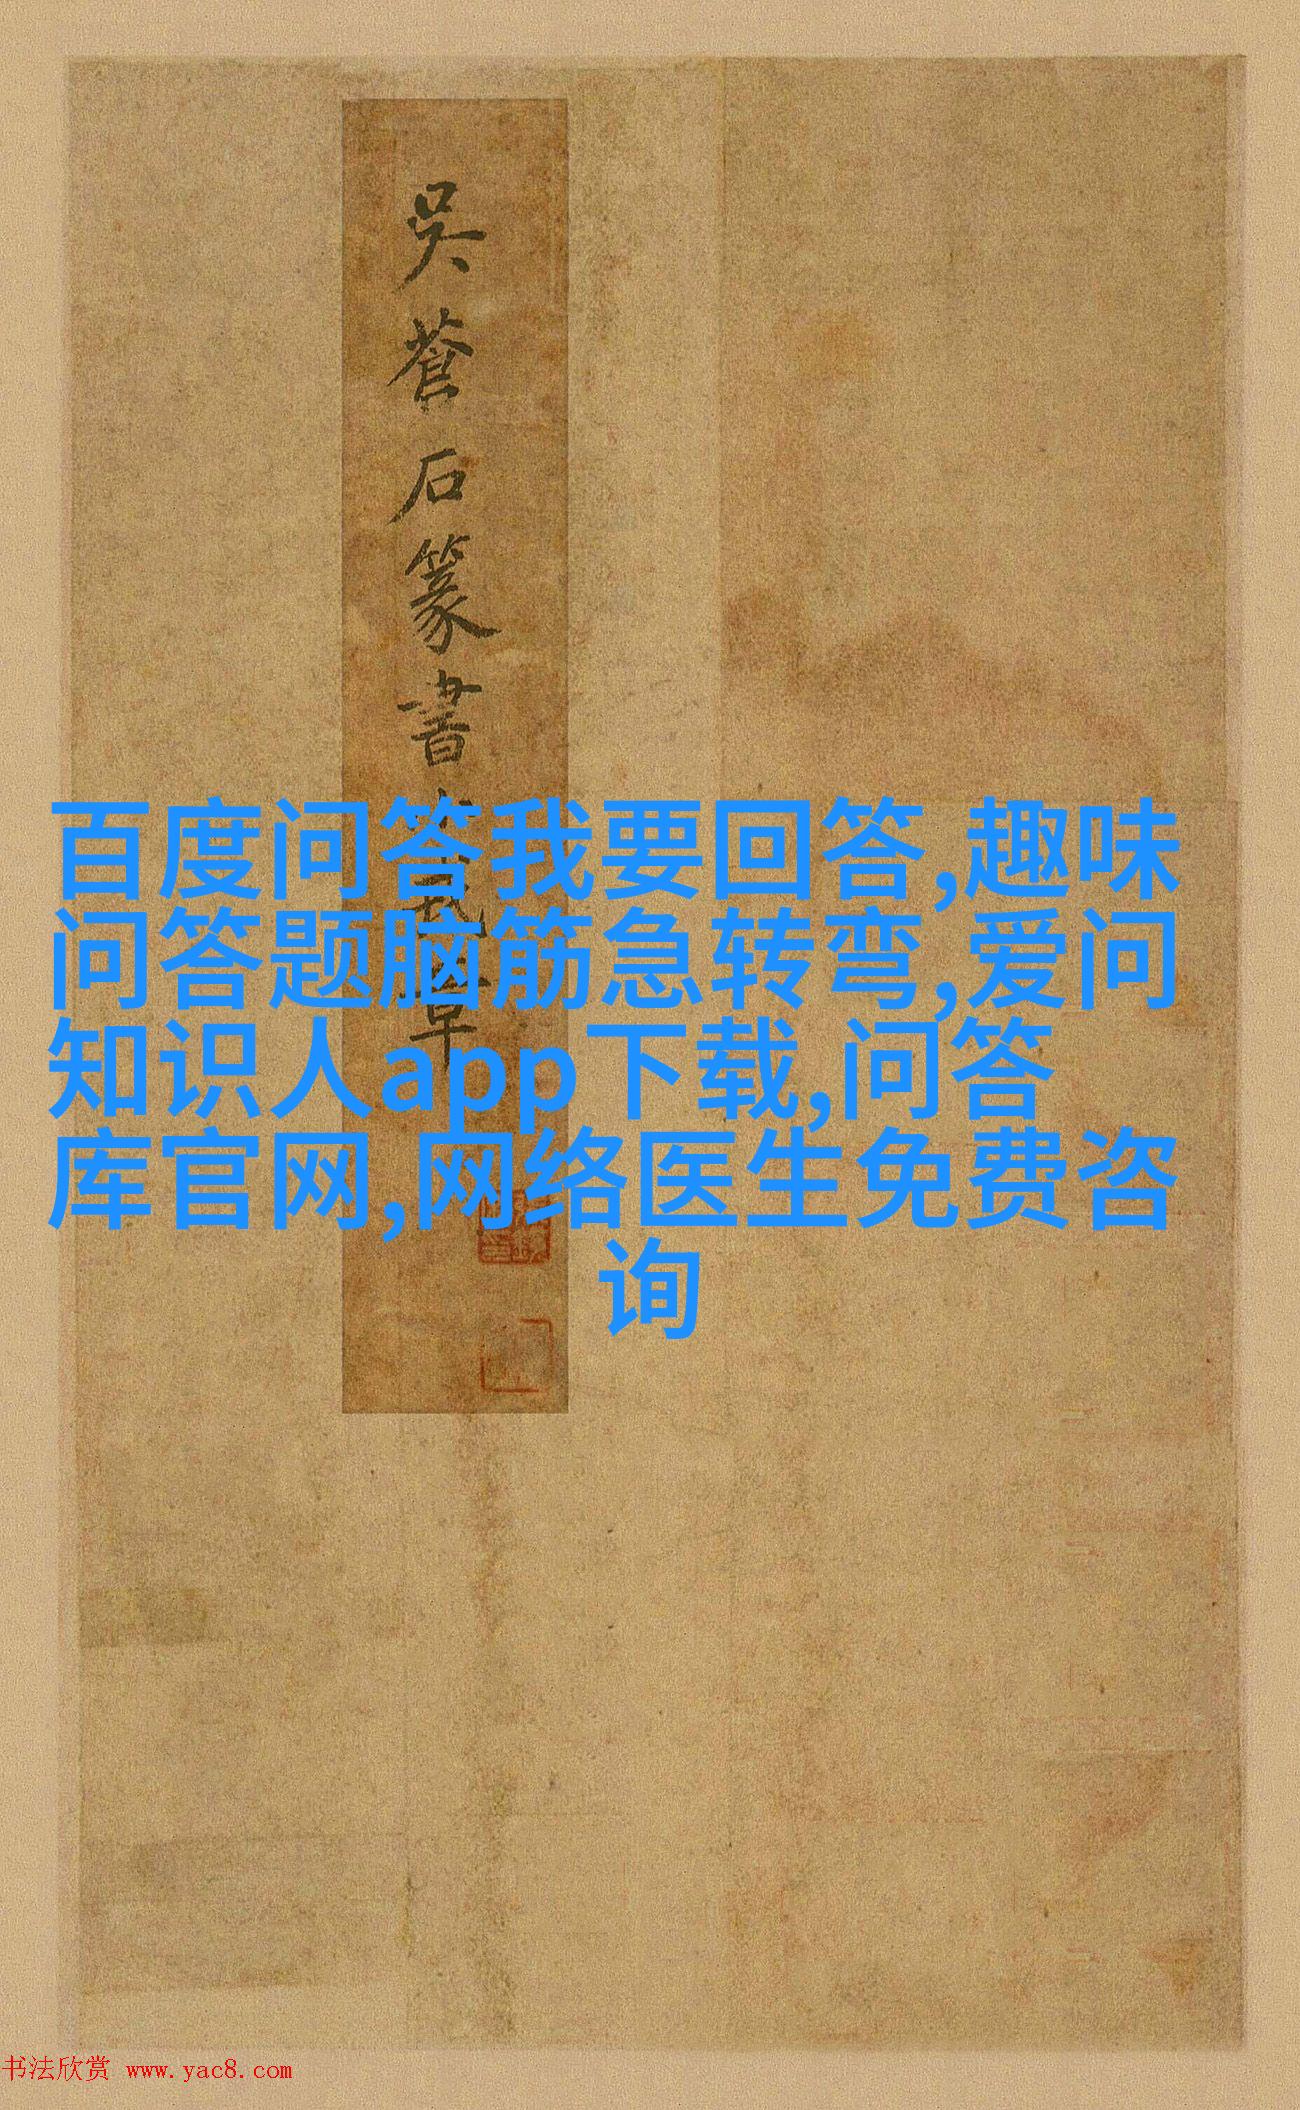 吴蒼石篆書
百度问答我要回答,趣味
问答题脑筋急转弯,爱问
知识人app下载,问答
库官网,网络医生免费咨
询
书法欣赏 www.yac8.com